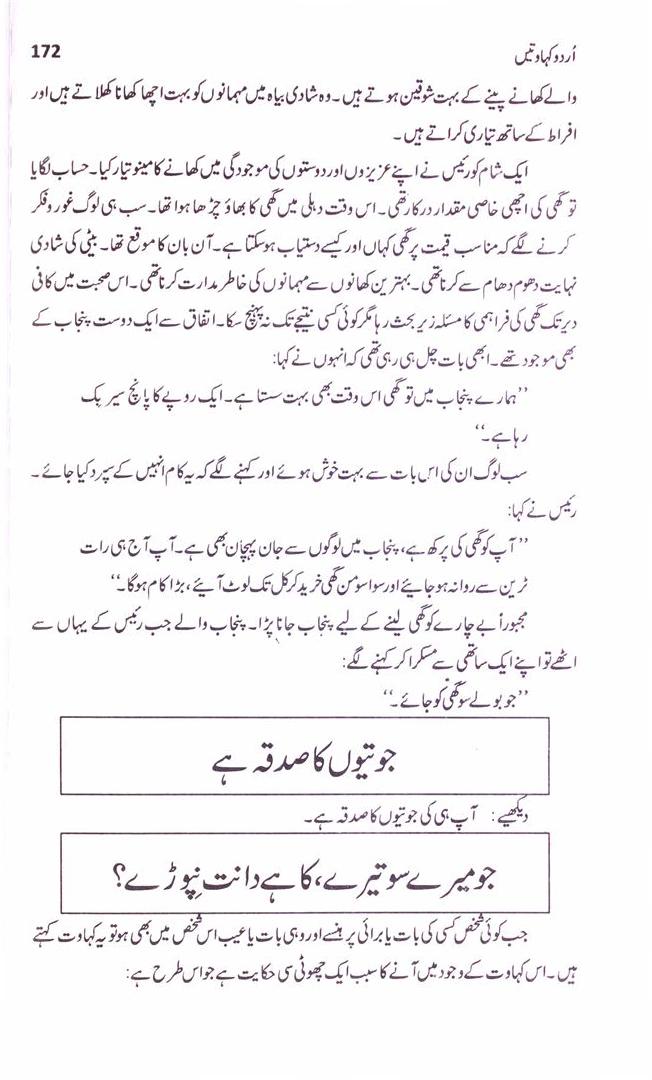 اُردو کہاوتیں 172
والے کھانے پینے کے بہت شوقین ہوتے ہیں۔ وہ شادی بیاہ میں مہمانوں کو بہت اچھا کھانا کھلاتے ہیں اور
افراط کے ساتھ تیاری کراتے ہیں۔
ایک شام کو رئیس نے اپنے عزیزوں اور دوستوں کی موجودگی میں کھانے کا مینو تیار کیا۔ حساب لگایا
تو گھی کی اچھی خاصی مقدار درکار تھی۔ اس وقت دہلی میں گھی کا بھاؤ چڑھا ہوا تھا۔ سب ہی لوگ غور و فکر
کرنے لگے کہ مناسب قیمت پر گھی کہاں اور کیسے دستیاب ہو سکتا ہے۔ آن بان کا موقع تھا۔ بیٹی کی شادی
نہایت دھوم دھام سے کرنا تھی۔ بہترین کھانوں سے مہمانوں کی خاطر مدارت کرنا تھی۔ اس صحبت میں کافی
دیر تک گھی کی فراہمی کا مسئلہ زیر بحث رہا مگر کوئی کسی نتیجے تک نہ پہنچ سکا۔ اتفاق سے ایک دوست پنجاب کے
بھی موجود تھے۔ ابھی بات چل ہی رہی تھی کہ انہوں نے کہا:
’’ہمارے پنجاب میں تو گھی اس وقت بھی بہت سستا ہے۔ ایک روپے کا پانچ سیر بِک
رہا ہے۔‘‘
سب لوگ ان کی اس بات سے بہت خوش ہوئے اور کہنے لگے کہ یہ کام انہیں کے سپرد کیا جائے۔
رئیس نے کہا:
’’آپ کو گھی کی پرکھ ہے، پنجاب میں لوگوں سے جان پہچان بھی ہے۔ آپ آج ہی رات
ٹرین سے روانہ ہو جایئے اور سوا سو من گھی خرید کر کل تک لوٹ آیئے، بڑا کام ہوگا۔‘‘
مجبوراً بے چارے کو گھی لینے کے لیے پنجاب جانا پڑا۔ پنجاب والے جب رئیس کے یہاں سے
اٹھے تو اپنے ایک ساتھی سے مسکرا کر کہنے لگے:
’’جو بولے سو گھی کو جائے۔‘‘
جوتیوں کا صدقہ ہے
دیکھیے: آپ ہی کی جوتیوں کا صدقہ ہے۔
جو میرے سو تیرے، کاہے دانت نِپوڑے؟
جب کوئی شخص کسی کی بات یا برائی پر ہنسے اور وہی بات یا عیب اس شخص میں بھی ہو تو یہ کہاوت کہتے
ہیں۔ اس کہاوت کے وجود میں آنے کا سبب ایک چھوٹی سی حکایت ہے جو اس طرح ہے: